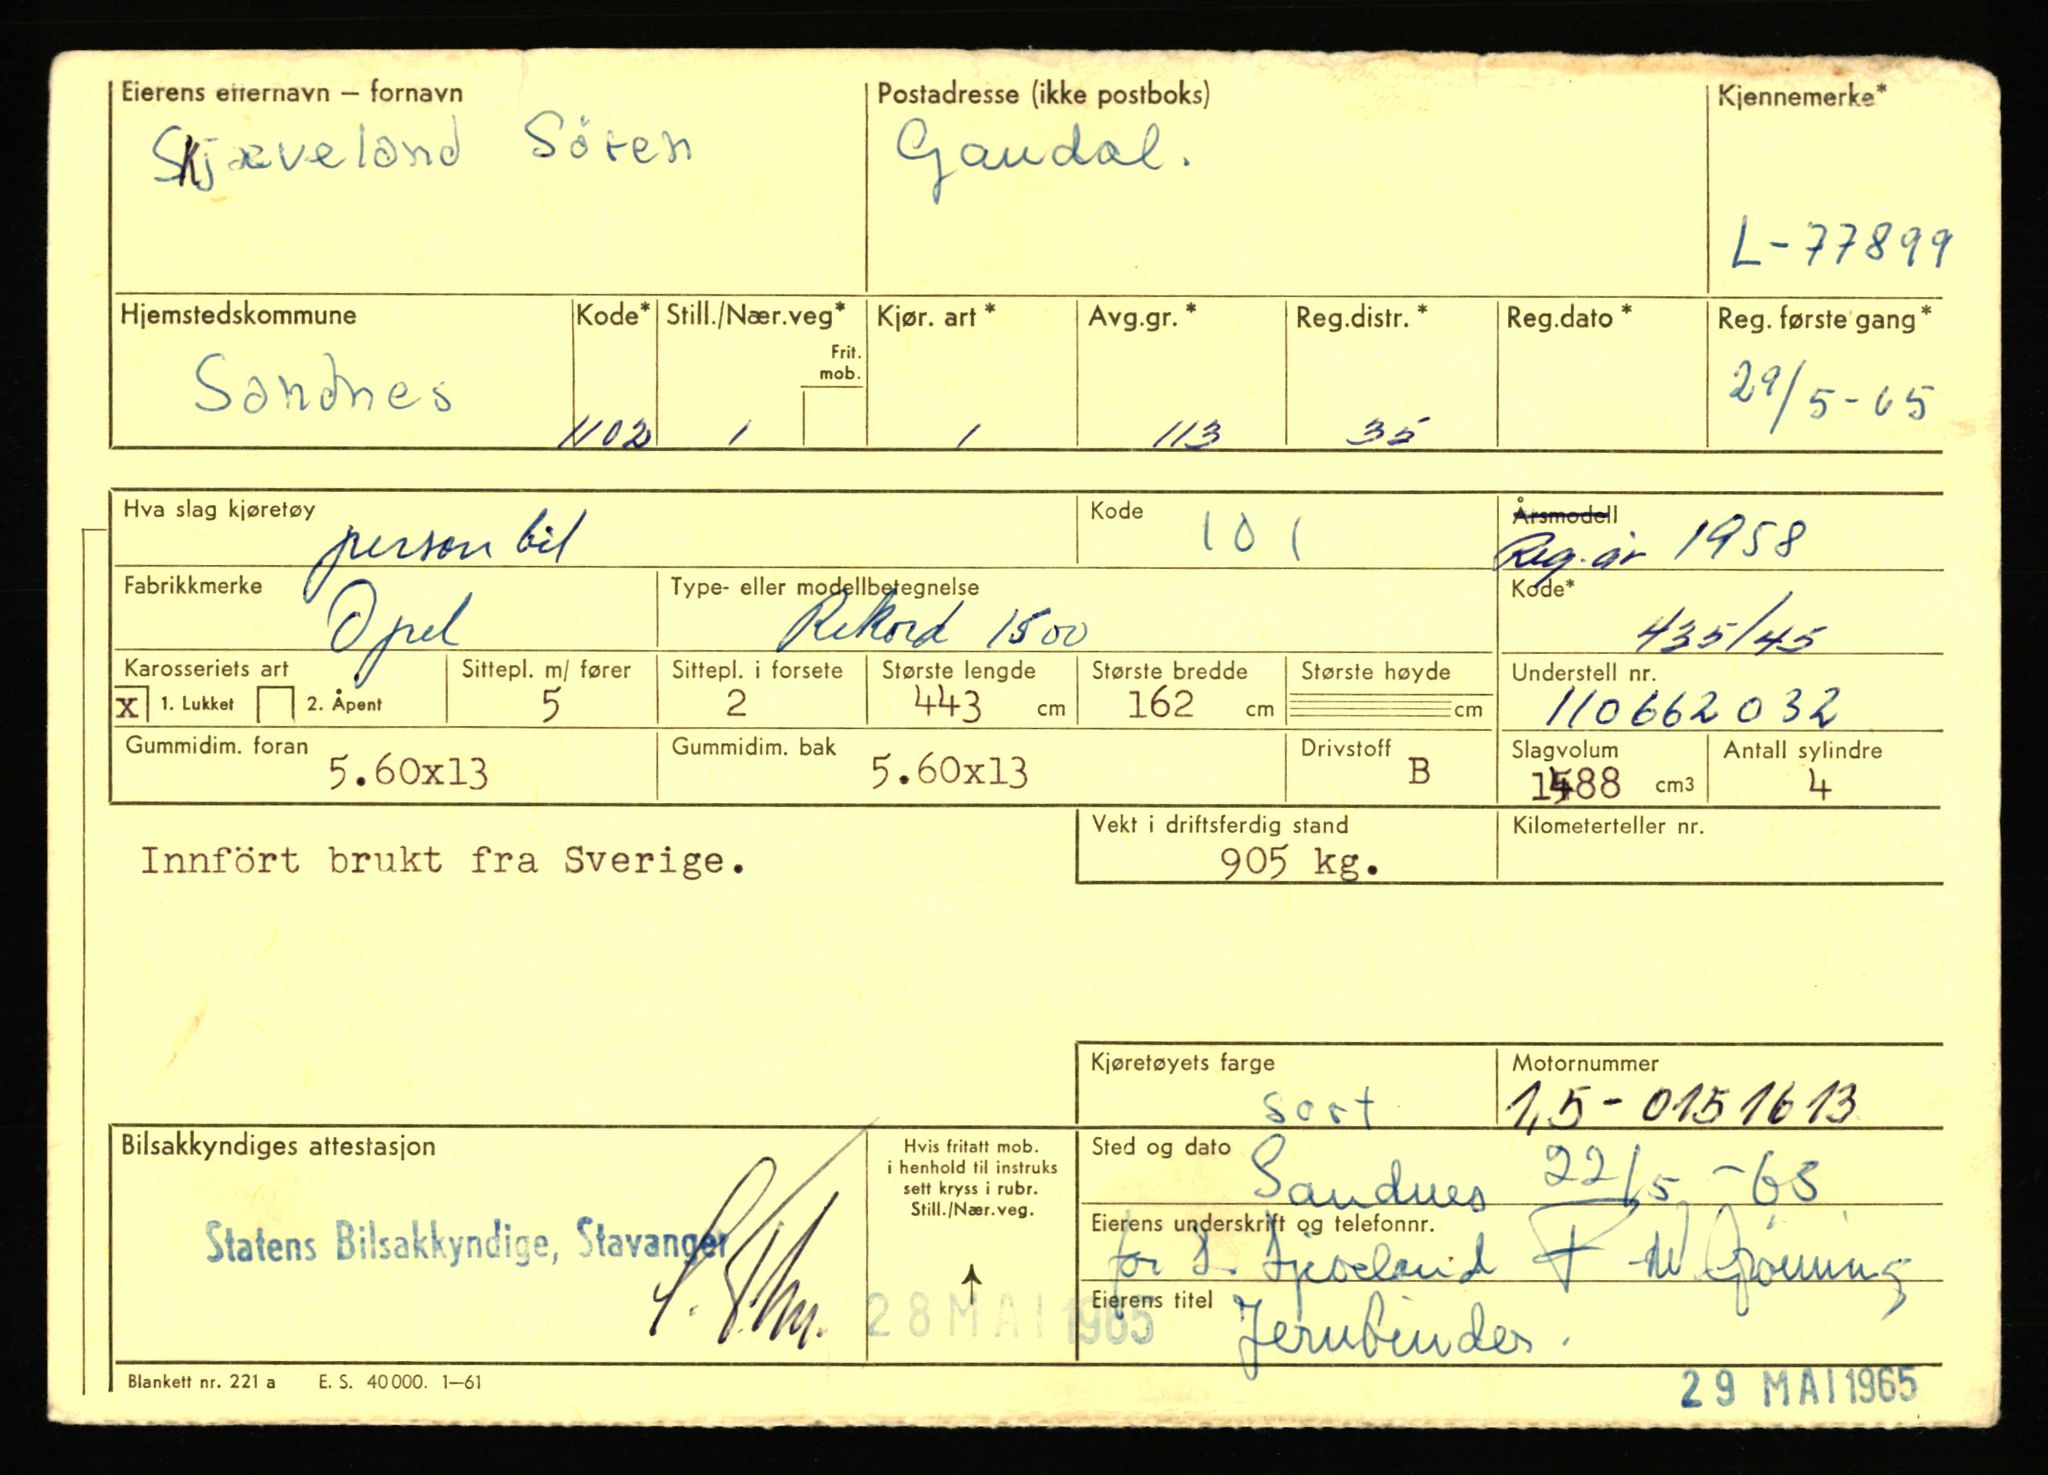 Eierens etternavn — fornavn
Skjæveland Sören
Postadresse (ikke postboks)
Gandal.
Kjennemerke*
L-77899
Hjemstedskommune
Sandnes
Kode*
1102
Still./Nær.veg*
Frit. mob.
1
Kjør. art *
1
Avg.gr. *
113
Reg.distr. *
35
Reg.dato *
Reg. første gang*
29/5-65
Hva slag kjøretøy
personbil
Kode
101
Årsmodell
Reg.år 1958
Fabrikkmerke
Opel
Type- eller modellbetegnelse
Rekord 1500
Kode*
435/45
Karosseriets art
x 1. Lukket 2. Åpent
Sittepl. m/ fører
5
Sittepl. i forsete
2
Største lengde
443 cm
Største bredde
162 cm
Største høyde
cm
Understell nr.
110662032
Gummidim. foran
5.60x13
Gummidim. bak
5.60x13
Drivstoff
B
Slagvolum
1488 cm3
Antall sylindre
4
Innfört brukt fra Sverige.
Vekt i driftsferdig stand
905 kg.
Kilometerteller nr.
Kjøretøyets farge
sort
Motornummer
1,5-0151613
Bilsakkyndiges attestasjon
Statens Bilsakkyndige, Stavanger
Hvis fritatt mob.
i henhold til instruks
sett kryss i rubr.
Still./Nær.veg.
28 MAI 1965
Sted og dato
Sandnes 22/5-65
Eierens underskrift og telefonnr.
for S. Skjæveland
Eierens titel
Jernbinder.
Blankett nr. 221 a E. S. 40 000. 1—61
29 MAI 1965